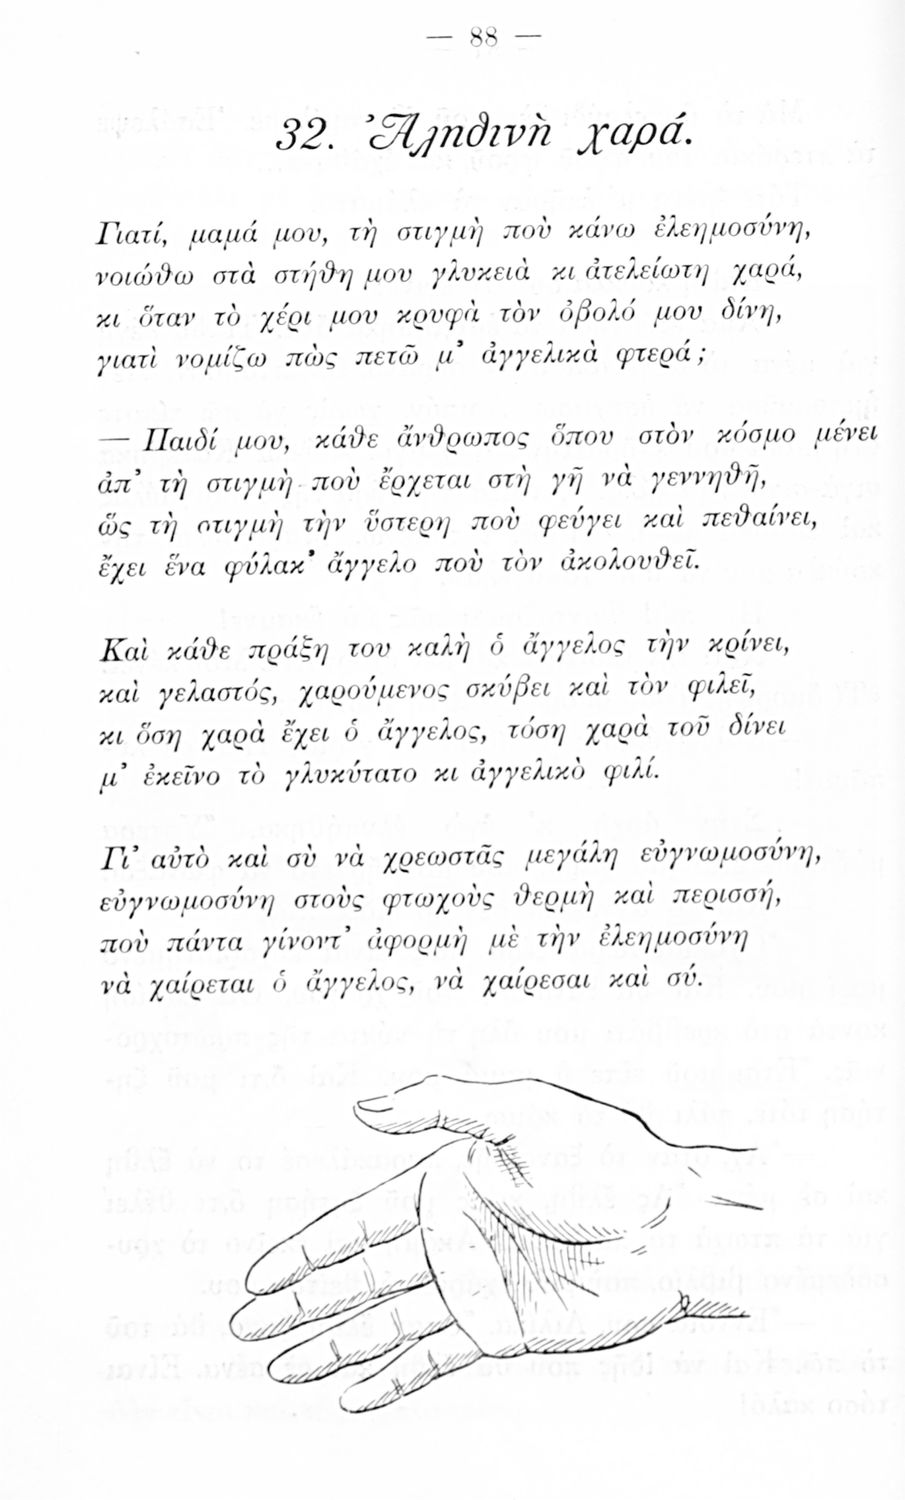 — 88 —
32. Ἀληθινὴ χαρά.
Γιατί, μαμά μου, τὴ στιγμὴ ποὺ κάνω ἐλεημοσύνη,
νοιώθω στὰ στήθη μου γλυκειὰ κι ἀτελείωτη χαρά,
κι ὅταν τὸ χέρι μου κρυφὰ τὸν ὀβολό μου δίνη,
γιατὶ νομίζω πὼς πετῶ μ’ ἀγγελικὰ φτερά;
— Παιδί μου, κάθε ἄνθρωπος ὅπου στὸν κόσμο μένει
ἀπ’ τὴ στιγμὴ ποὺ ἔρχεται στὴ γῆ νὰ γεννηθῆ,
ὥς τὴ στιγμὴ τὴν ὕστερη ποὺ φεύγει καὶ πεθαίνει,
ἔχει ἕνα φύλακ’ ἄγγελο ποὺ τὸν ἀκολουθεῖ.
Καὶ κάθε πράξη του καλὴ ὁ ἄγγελος τὴν κρίνει,
καὶ γελαστός, χαρούμενος σκύβει καὶ τὸν φιλεῖ,
κι ὅση χαρὰ ἔχει ὁ ἄγγελος, τόση χαρὰ τοῦ δίνει
μ’ ἐκεῖνο τὸ γλυκύτατο κι ἀγγελικὸ φιλί.
Γι’ αὐτὸ καὶ σὺ νὰ χρεωστᾶς μεγάλη εὐγνωμοσύνη,
εὐγνωμοσύνη στοὺς φτωχοὺς θερμὴ καὶ περισσή,
ποὺ πάντα γίνοντ’ ἀφορμὴ μὲ τὴν ἐλεημοσύνη
νὰ χαίρεται ὁ ἄγγελος, νὰ χαίρεσαι καὶ σύ.